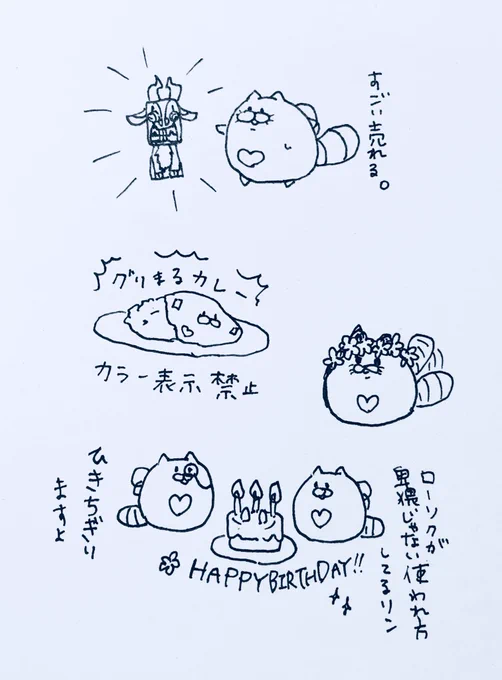 すごい売れる。
グリまるカレー
カラー表示禁止
ローソクが
卑猥じゃない使われ方
してるリン
ひきちぎり
ますよ
HAPPY BIRTHDAY!!